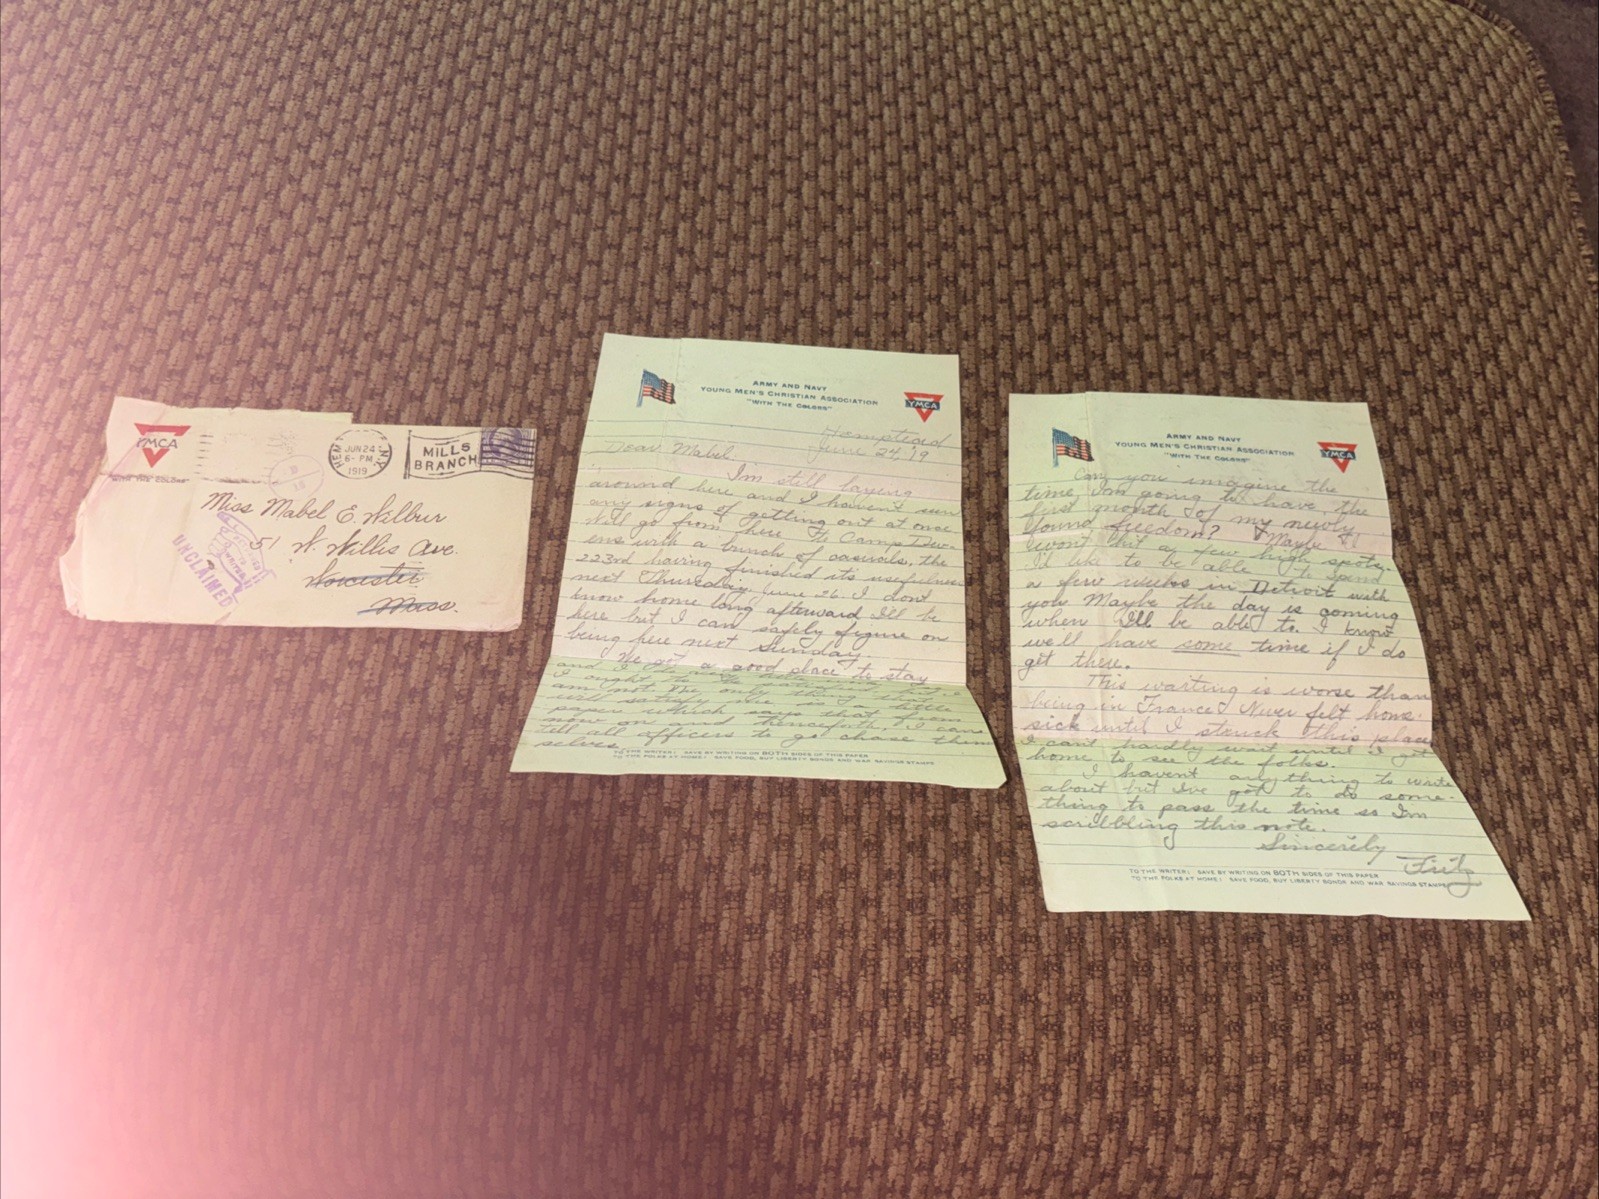 YMCA
"WITH THE COLORS"
HEM
N.Y.
JUN 24
6 - PM
1919
MILLS
BRANCH
Miss Mabel E. Wilbur
51 W. Willis Ave.
Worcester
Mass.
UNCLAIMED
ARMY AND NAVY
YOUNG MEN'S CHRISTIAN ASSOCIATION
"WITH THE COLORS"
YMCA
Hempstead
June 24 '19
Dear Mabel.
I'm still laying
around here and I haven't seen
any signs of getting out at once
Will go from here to Camp Dev-
ens with a bunch of casuals, the
223rd having finished its usefulness
next Thursday, June 26. I don't
know home long afterward I'll be
here but I can safely figure on
being here next Sunday.
We got a good place to stay
and
I ought to be
am not the only thing
will satisfy me is a little
paper which says that from
now on and henceforth, I can
tell all officers to go chase them
selves.
TO THE WRITER: SAVE BY WRITING ON BOTH SIDES OF THIS PAPER
TO THE FOLKS AT HOME: SAVE FOOD, BUY LIBERTY BONDS AND WAR SAVINGS STAMPS
ARMY AND NAVY
YOUNG MEN'S CHRISTIAN ASSOCIATION
"WITH THE COLORS"
YMCA
Can you imagine the
time I'm going to have, the
first month of my newly
found freedom? Maybe I
won't hit a few high spots.
I'd like to be able to spend
a few weeks in Detroit with
you Maybe the day is coming
when I'll be able to. I know
we'll have some time if I do
get there.
This waiting is worse than
being in France I Never felt home-
sick until I struck this place
I can't hardly wait until I get
home to see the folks.
I haven't anything to write
about but I've got to do some-
thing to pass the time so I'm
scribbling this note.
Sincerely
Fritz
TO THE WRITER: SAVE BY WRITING ON BOTH SIDES OF THIS PAPER
TO THE FOLKS AT HOME: SAVE FOOD, BUY LIBERTY BONDS AND WAR SAVINGS STAMPS